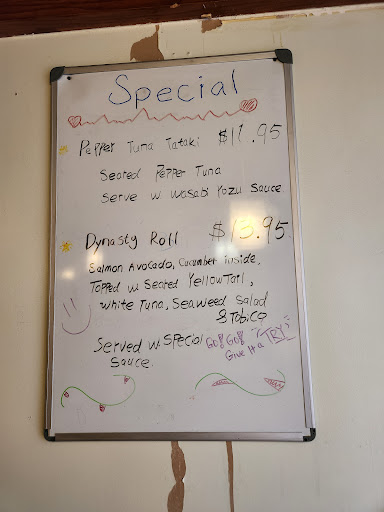 Special
Pepper Tuna Tataki $17.95
Seared Pepper Tuna
Serve w wasabi Yozu Sauce
Dynasty Roll $15.95
Salmon Avocado, Cucumber inside,
Topped w Seared Yellow Tail,
white Tuna, Seaweed Salad
& Tobico
Served w special
Sauce.
Go!! Go!!
Give it a "TRY"